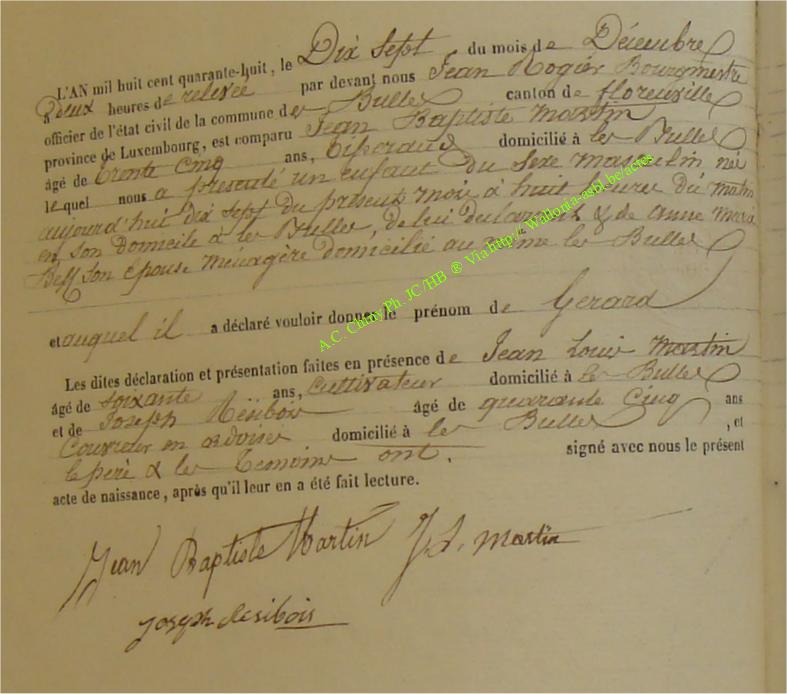 L'AN mil huit cent quarante-huit, le Dix Sept du mois de Décembre
à deux heures de relevée par devant nous Jean Rogier Bourgmestre
officier de l'état civil de la commune de les Bulles canton de florenville
province de Luxembourg, est comparu Jean Baptiste Martin
âgé de trente cinq ans, tisserand domicilié à les Bulles
lequel nous a présenté un enfant du sexe masculin né
aujourd'hui dix sept du présent mois à huit heures du matin
en son domicile à les Bulles, de lui déclarant & de anne Marie
son épouse ménagère domicilié au même les Bulles
et auquel il a déclaré vouloir donner le prénom de Gérard
Les dites déclaration et présentation faites en présence de Jean Louis Martin
âgé de soixante ans, cultivateur domicilié à les Bulles
et de Joseph Résibois âgé de quarante cinq ans
Couvreur en ardoises domicilié à les Bulles , et
le père & les temoins ont. signé avec nous le présent
acte de naissance, après qu'il leur en a été fait lecture.
Jean Baptiste Martin J. L. Martin
Joseph Resibois
A.C. Chiny Ph. JC/HB ® Via http://Wallonia-asbl.be/actes